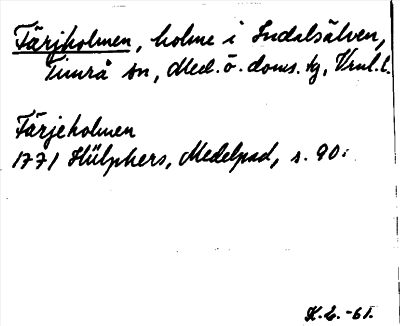 Färjholmen, holme i Indalsälven,
Timrå sn, Med. ö. doms. tg, Vrnl. l.
Färjeholmen
1771 Hülphers, Medelpad, s. 90.
K. L. -61.